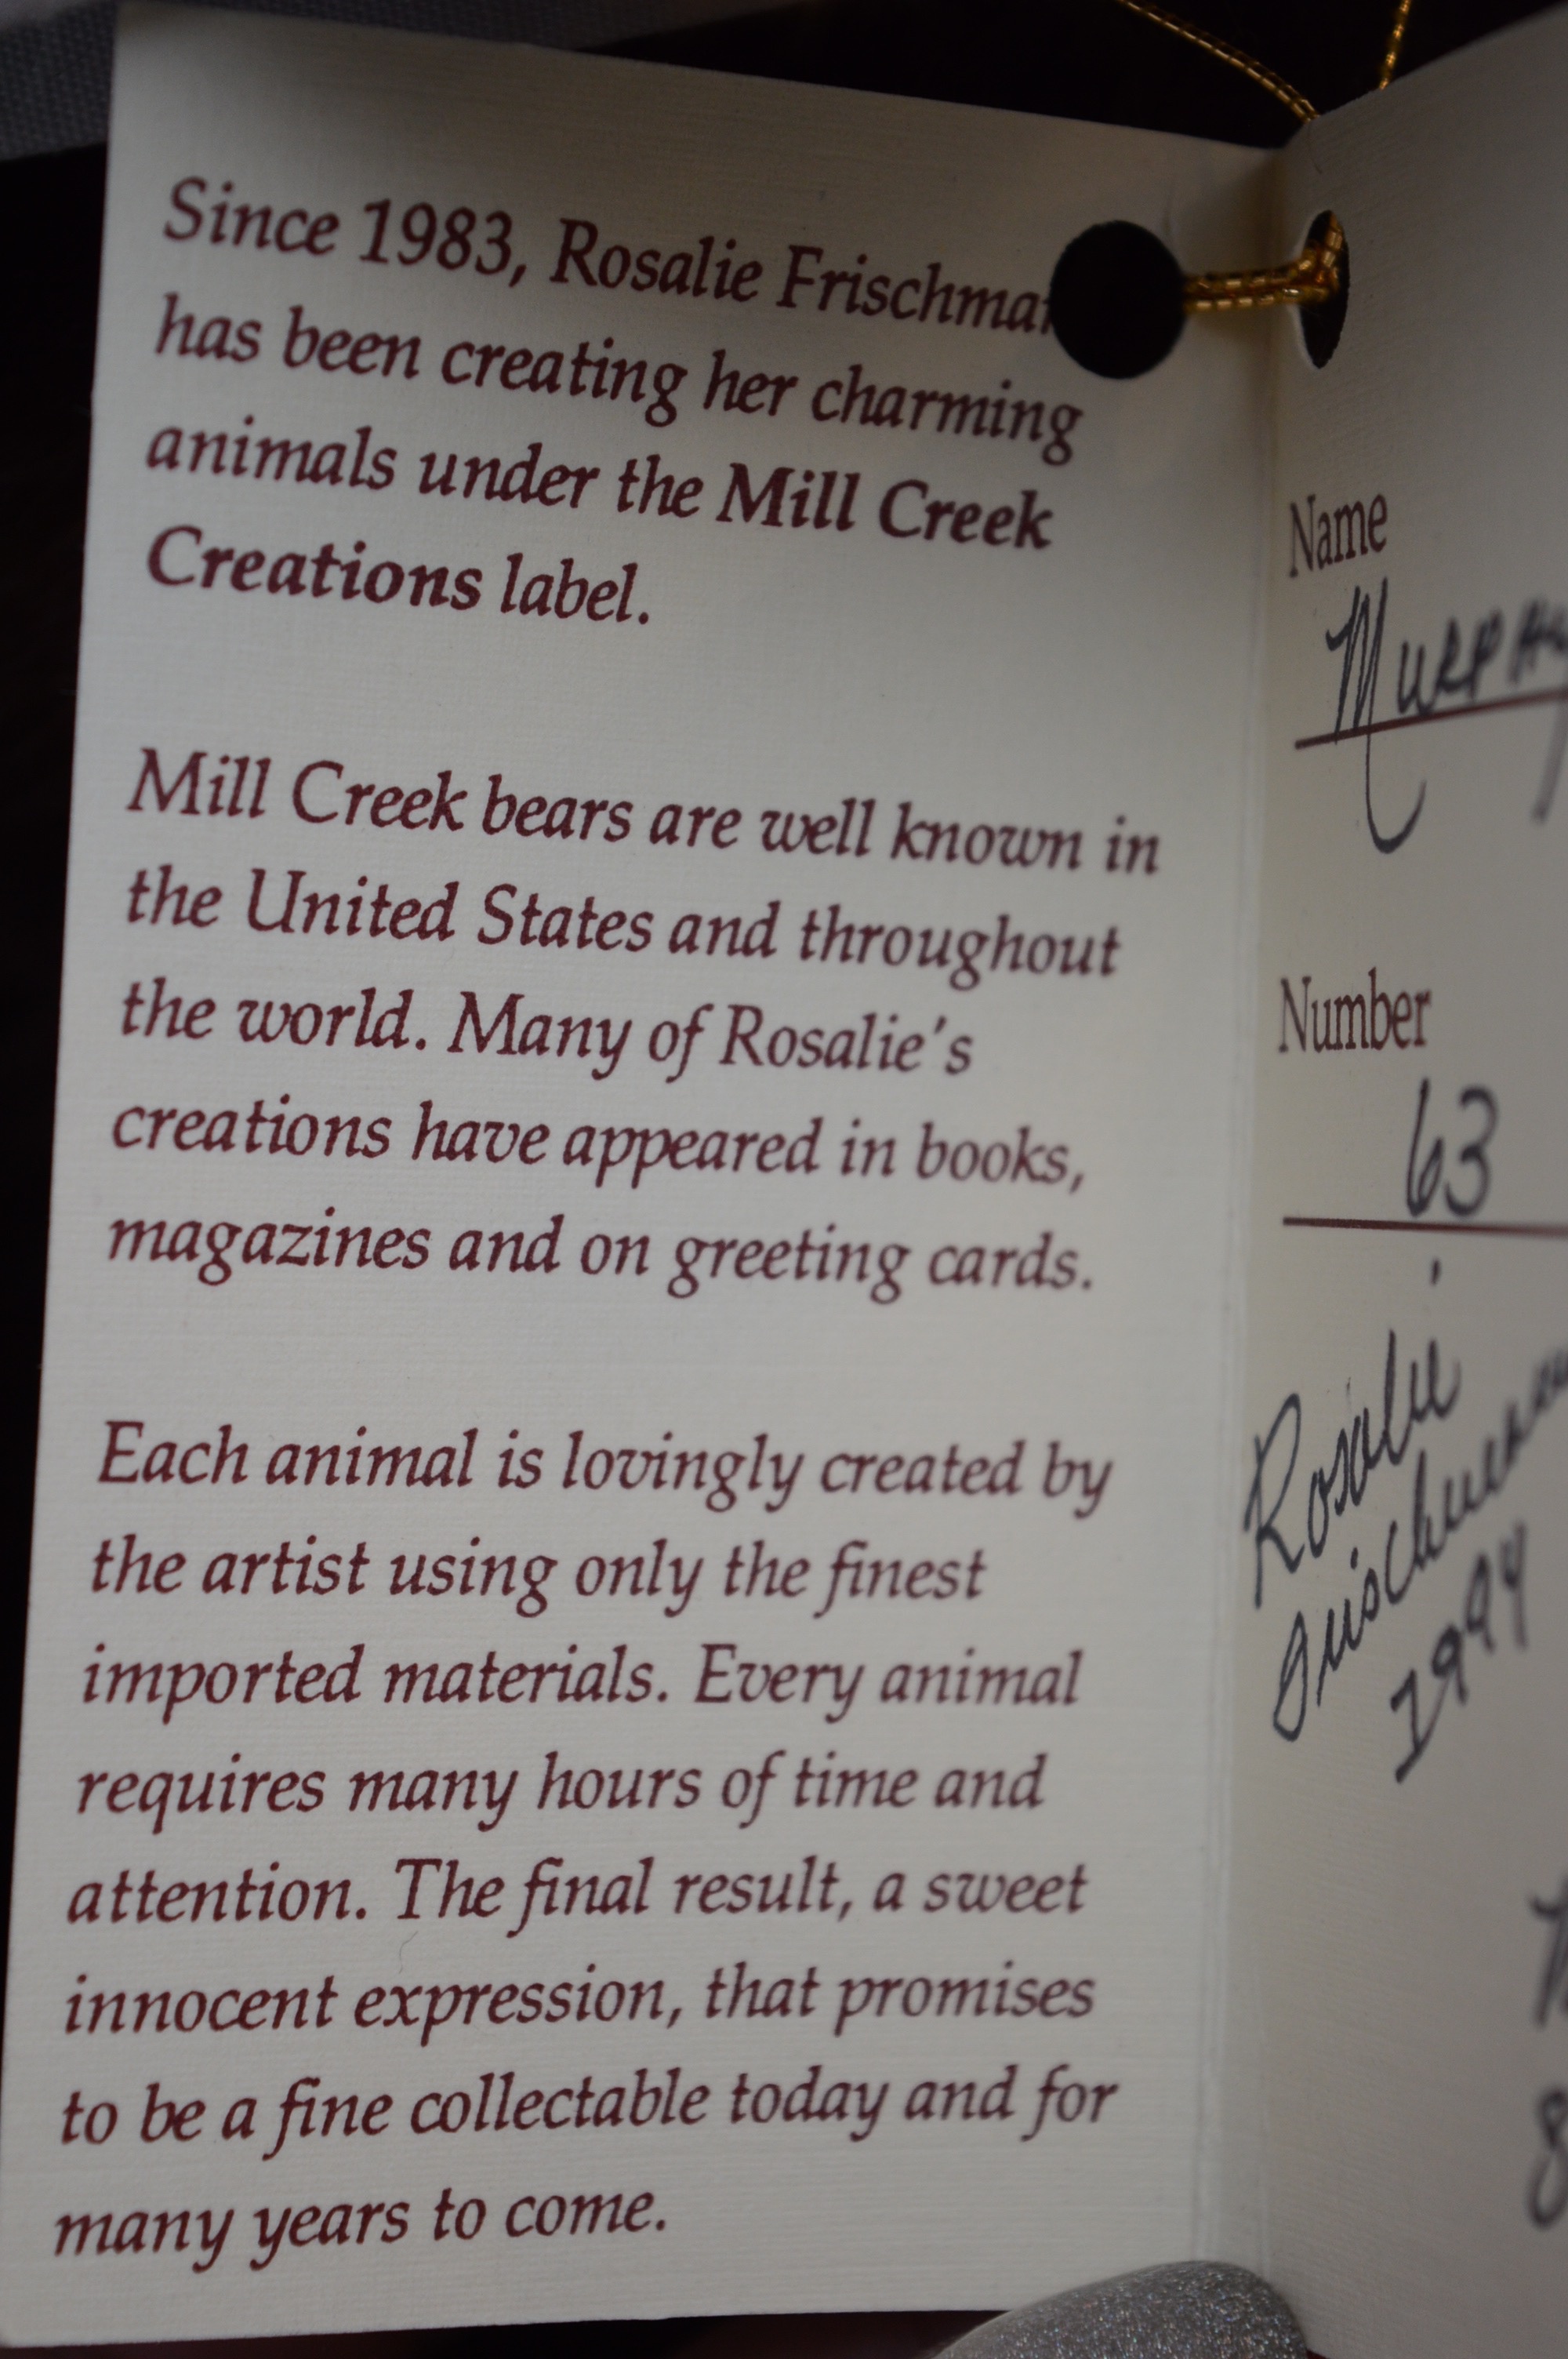 Since 1983, Rosalie Frischma
has been creating her charming
animals under the Mill Creek
Creations label.
Mill Creek bears are well known in
the United States and throughout
the world. Many of Rosalie's
creations have appeared in books,
magazines and on greeting cards.
Each animal is lovingly created by
the artist using only the finest
imported materials. Every animal
requires many hours of time and
attention. The final result, a sweet
innocent expression, that promises
to be a fine collectable today and for
many years to come.
Name
Murphy
Number
63
Rosalie
Frischman
1994
8